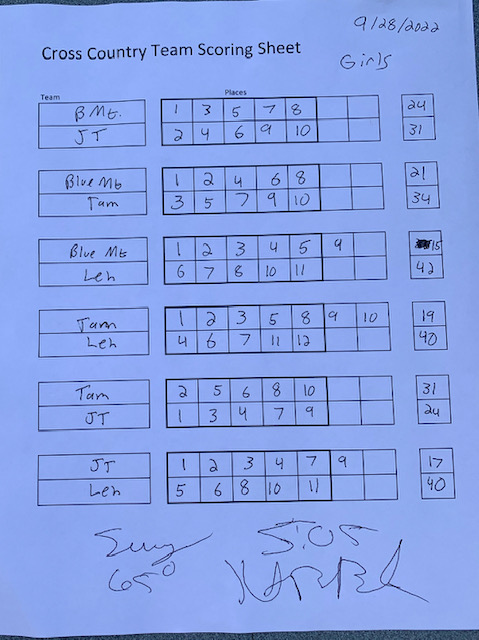 9/28/2022
Cross Country Team Scoring Sheet
Girls
Team Places
B Mt. 1 3 5 7 8 24
JT 2 4 6 9 10 31
Blue Mt 1 2 4 6 8 21
Tam 3 5 7 9 10 34
Blue Mt 1 2 3 4 5 9 15
Leh 6 7 8 10 11 42
Tam 1 2 3 5 8 9 10 19
Leh 4 6 7 11 12 40
Tam 2 5 6 8 10 31
JT 1 3 4 7 9 24
JT 1 2 3 4 7 9 17
Leh 5 6 8 10 11 40
5:05
65°